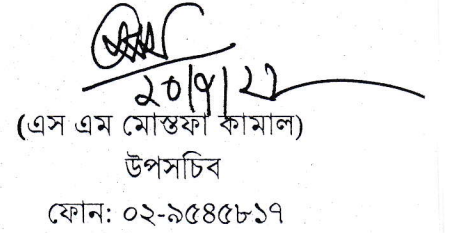 (এস এম মোস্তফা কামাল)
উপসচিব
ফোন: ০২-৯৫৪৫৮১৭